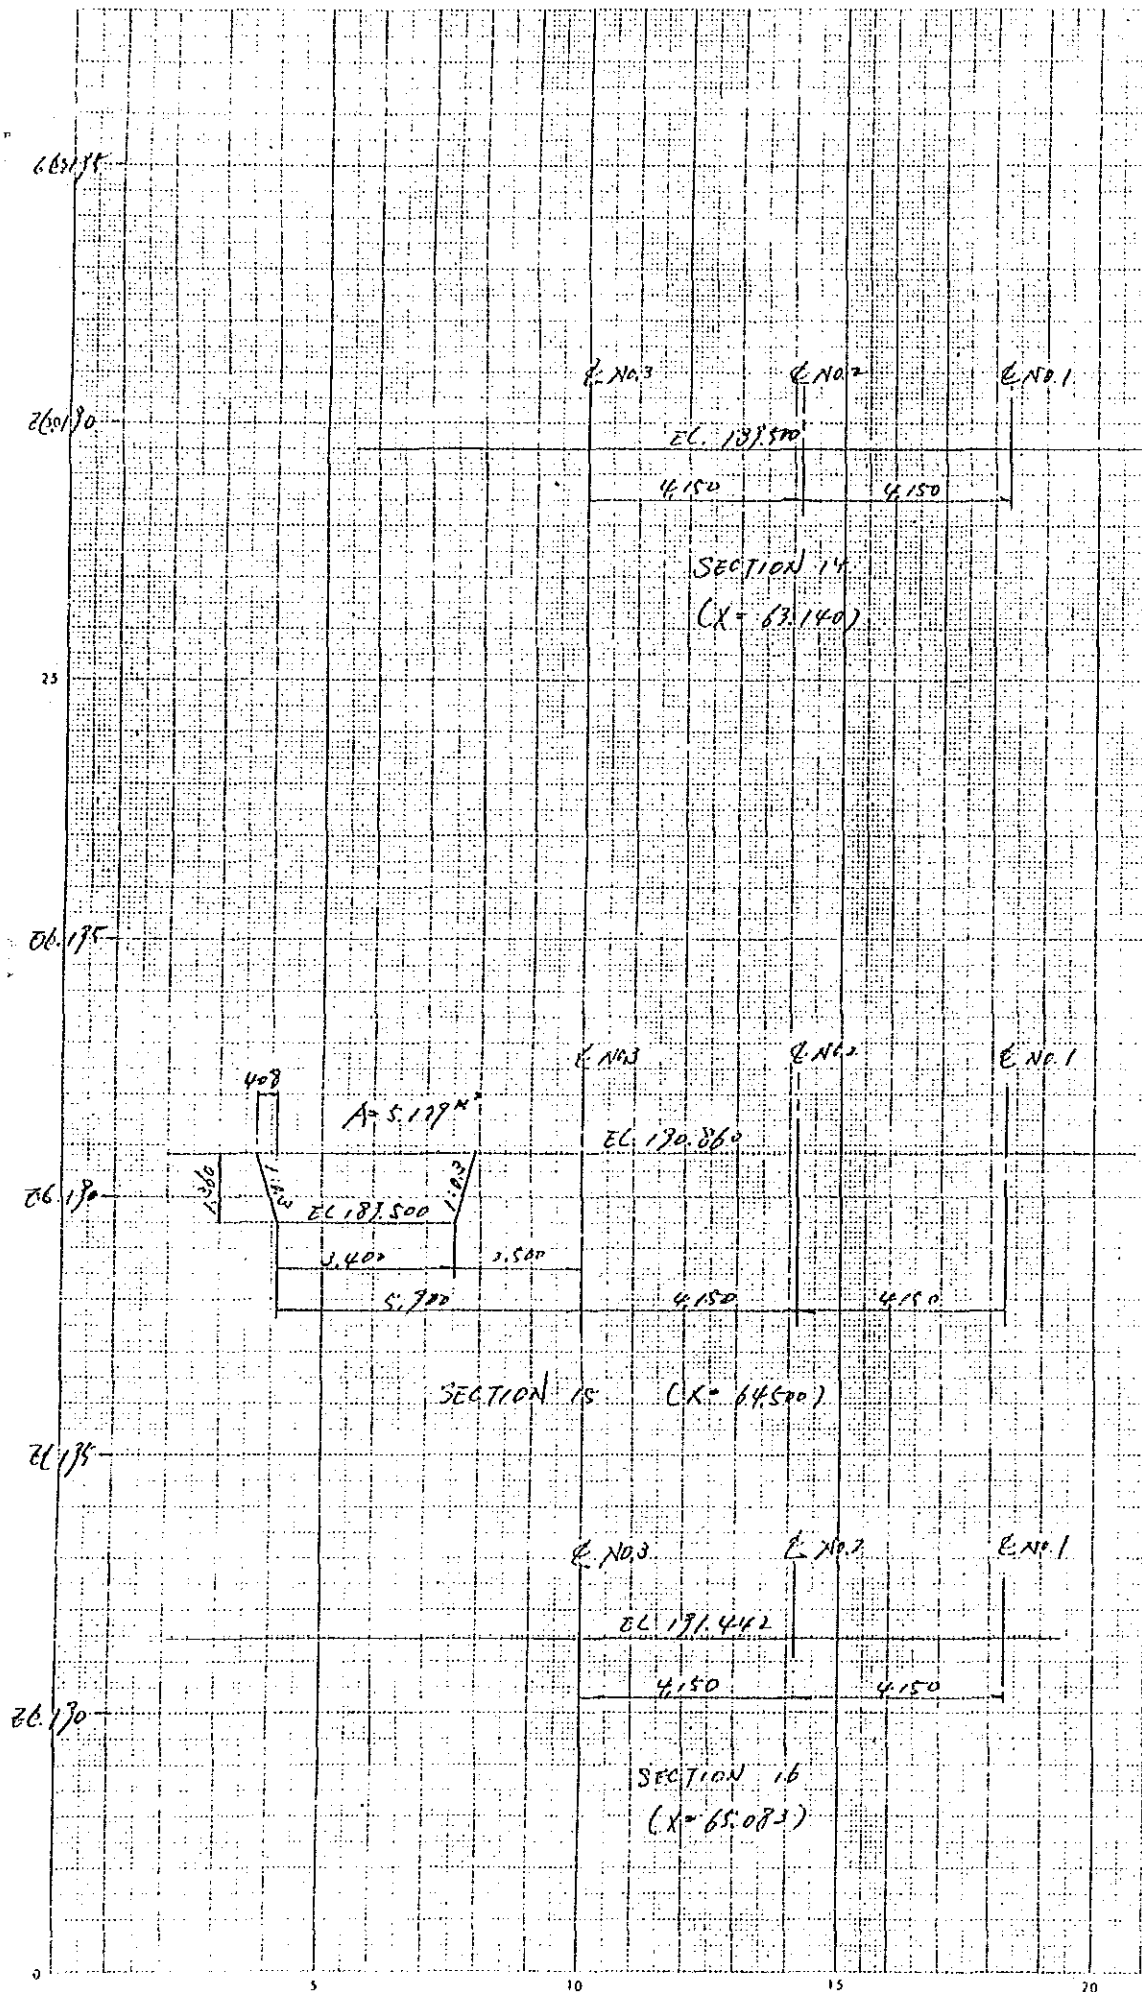 ℄ No.3 ℄ No.2 ℄ No.1
EL. 189.500
4.150 4.150
SECTION 14
(X= 63.140)
25
EL.195
℄ No.3 ℄ No.2 ℄ No.1
408
A= 5.179 m²
EL. 190.860
1.360
1:0.3
1:0.3
EL.190
EL 189.500
3.400 2.500
5.900 4.150 4.150
SECTION 15 (X= 64.500)
EL.195
℄ No.3 ℄ No.2 ℄ No.1
EL 191.442
4.150 4.150
EL.190
SECTION 16
(X= 65.083)
0 5 10 15 20